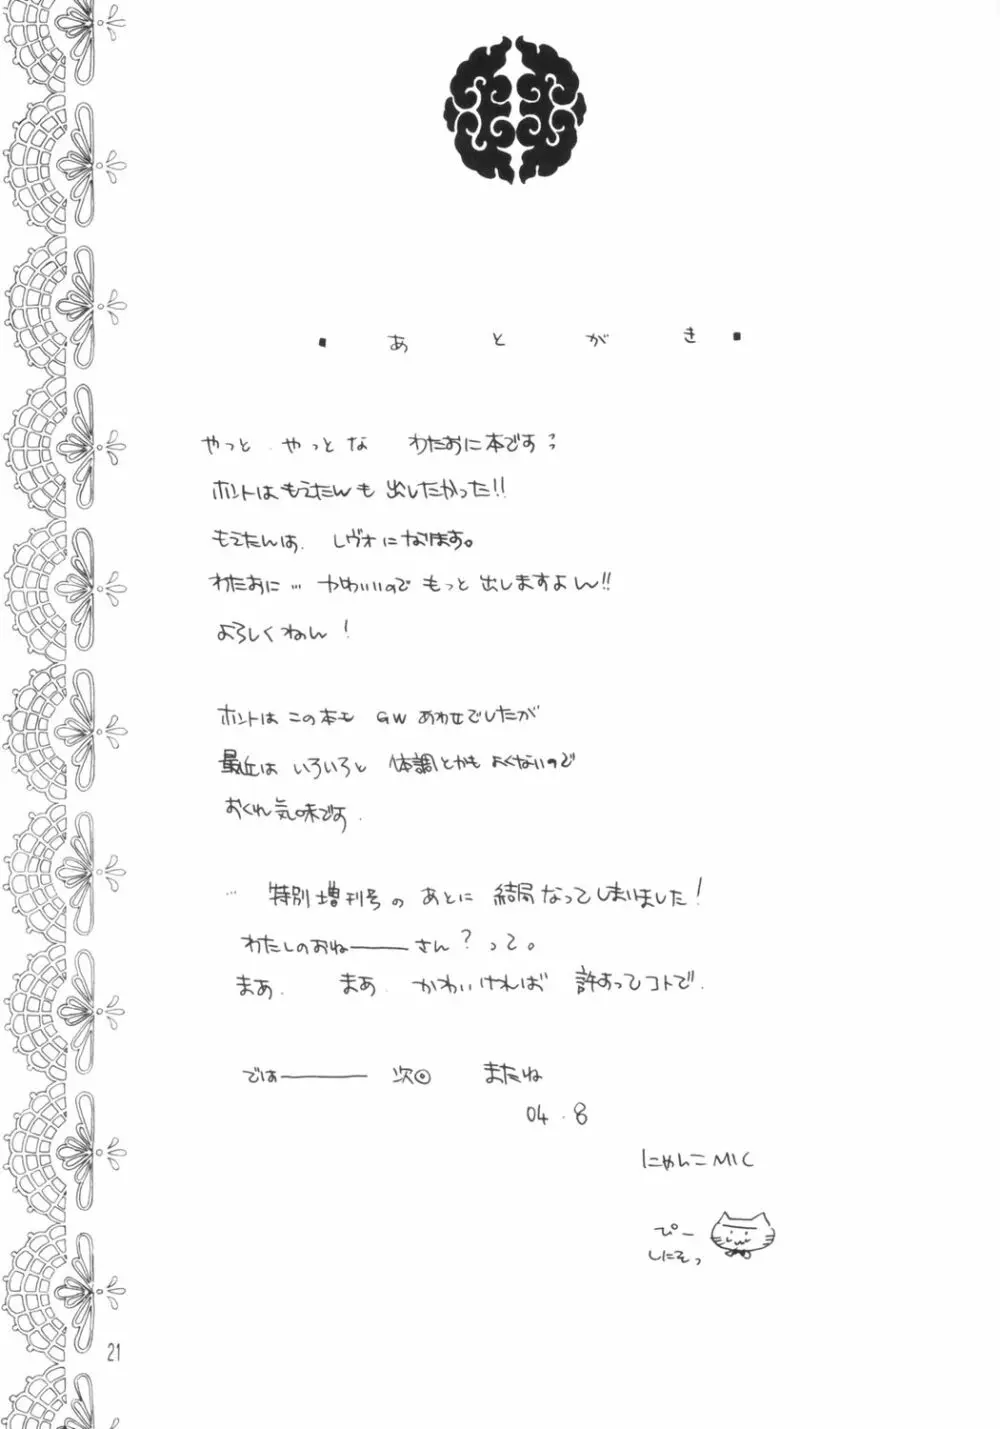 ■ あとがき ■
やっと、やっとな わたおに本です。
ホントはもえたんも出したかった!!
もえたんは、レヴォになります。
わたおに…かわいいのでもっと出しますよん!!
よろしくねん!
ホントはこの本も GWあわせでしたが
最近はいろいろと体調とかもよくないので
おくれ気味です.
… 特別増刊号のあとに結局なってしまいました!
わたしのおね――さん?って。
まあ. まあ. かわいければ 許すってコトで.
では―― 次回 またね
04.8
にゃんこMIC
ぴー
しにそっ
21